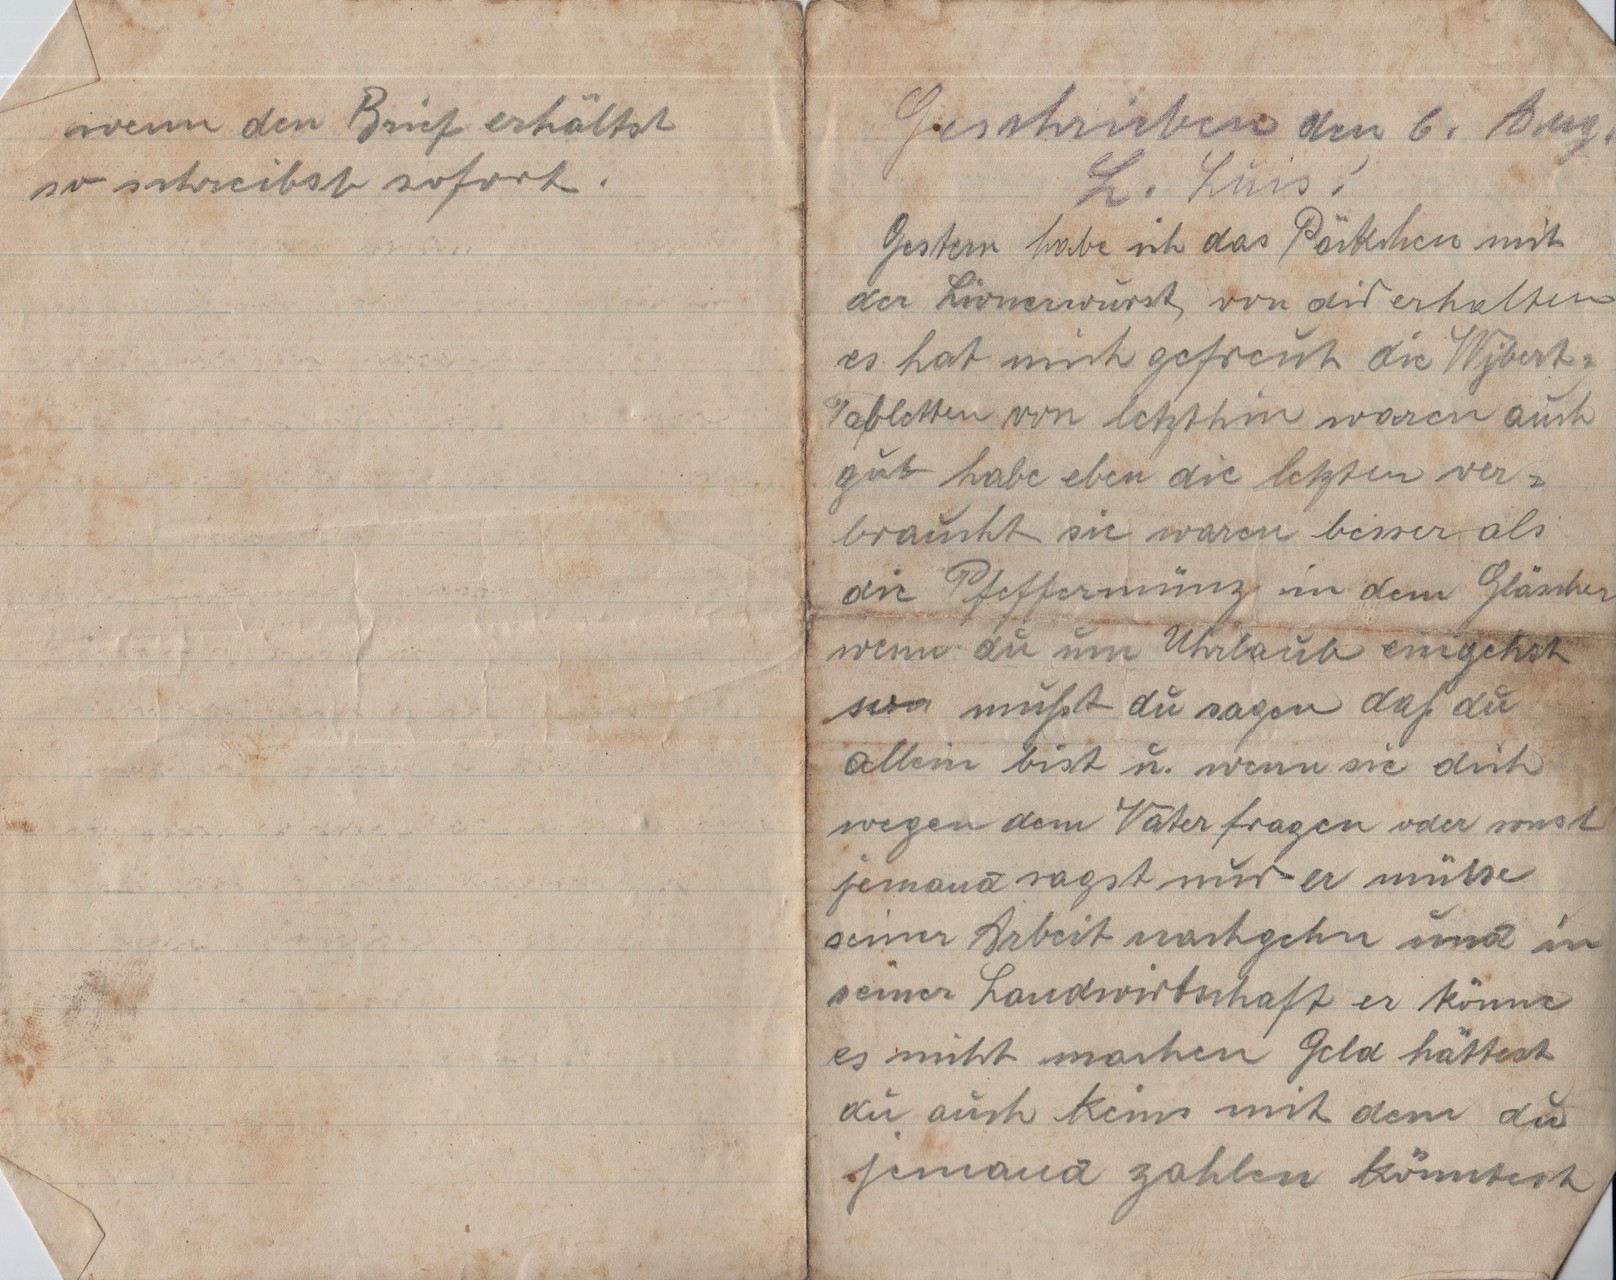 wenn den Brief erhältst
so schreibst sofort.
Geschrieben den 6. Aug.
L. Luis!
Gestern habe ich das Päckchen mit
der Lionerwurst, von dir erhalten
es hat mich gefreut die Wybert-
Tabletten von letzthin waren auch
gut habe eben die letzten ver-
braucht sie waren besser als
die Pfeffermünz in dem Gläschen
wenn du um Uhrlaub eingehst
mußt du sagen daß du
allein bist u. wenn sie dich
wegen dem Vater fragen oder sonst
jemand sagst nur er müsse
seiner Arbeit nachgehn und in
seiner Landwirtschaft er könne
es nicht machen Geld hättest
du auch keins mit dem du
jemand zahlen könntest